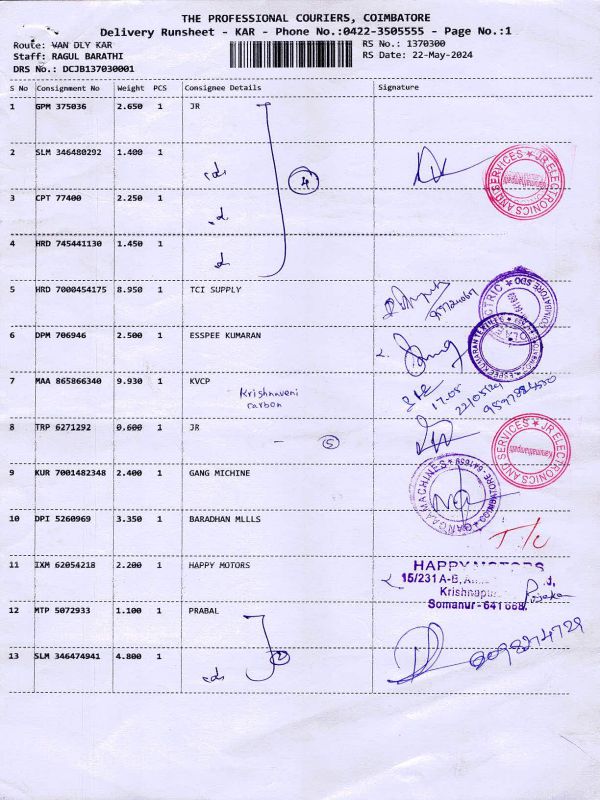 THE PROFESSIONAL COURIERS, COIMBATORE
Delivery Runsheet - KAR - Phone No.:0422-3505555 - Page No.:1
Route: VAN DLY KAR RS No.: 1370300
Staff: RAGUL BARATHI RS Date: 22-May-2024
DRS No.: DCJB137030001
S No Consignment No Weight PCS Consignee Details Signature
1 GPM 375036 2.650 1 JR
2 SLM 346480292 1.400 1
JR ELECTRONICS AND SERVICES
4
3 CPT 77400 2.250 1
4 HRD 745441130 1.450 1
5 HRD 7000454175 8.950 1 TCI SUPPLY
6 DPM 706946 2.500 1 ESSPEE KUMARAN
7 MAA 865866340 9.930 1 KVCP
Krishnaveni
carbon
17.05
22/05/24
8 TRP 6271292 0.600 1 JR
JR ELECTRONICS AND SERVICES
5
9 KUR 7001482348 2.400 1 GANG MICHINE
10 DPI 5260969 3.350 1 BARADHAN MLLLS
11 IXM 62054218 2.200 1 HAPPY MOTORS
HAPPY MOTORS
15/231 A-B,
Somanur - 641 668.
12 MTP 5072933 1.100 1 PRABAL
13 SLM 346474941 4.800 1
2